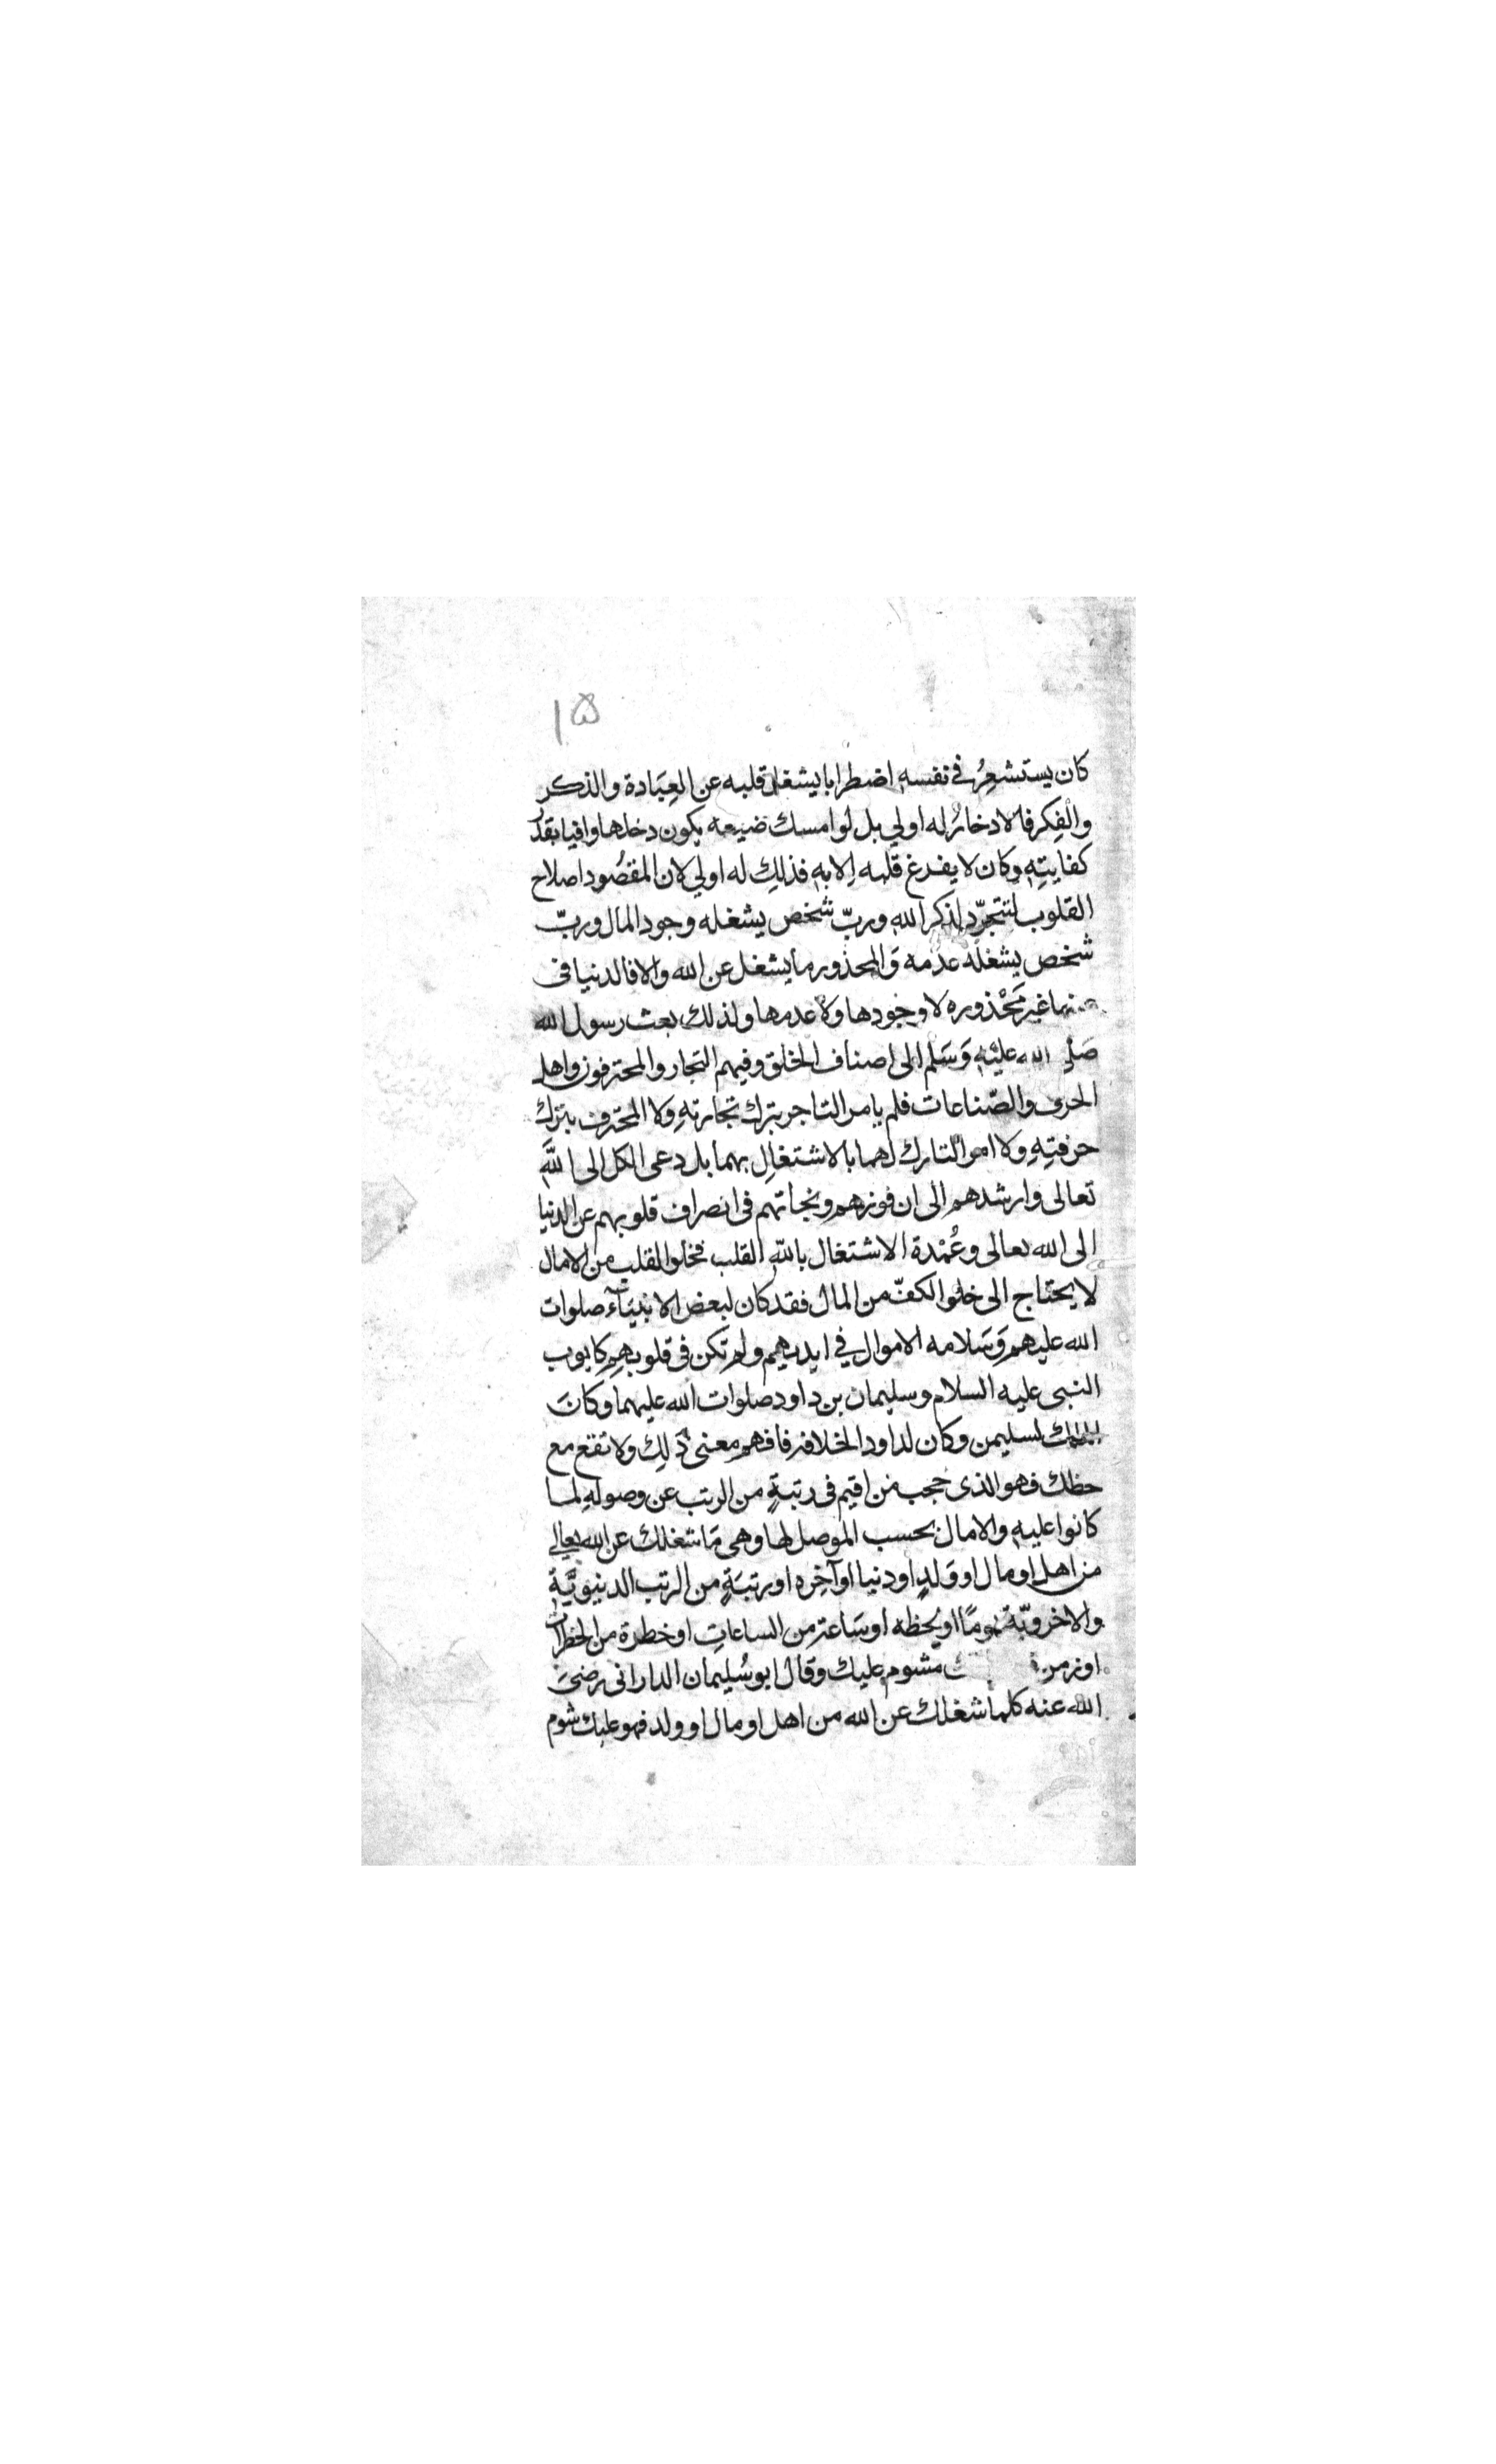 ١۵
كان يستشعِرُ في نفسهِ اضطرابا يشغل قلبه عن العِبَادة والذكر
والْفِكر فالادخارُ له اولي بل لو امسك ضيعه يكون دخلها وافيا بقدر
كفايتِهِ وكان لا يفرغ قلبه اِلا بهِ فذلِكِ له اولي لان المقصُود اصلاح
القلوب لتتجرّد لذكر اللهِ وربّ شخص يشغله وجود المال وربّ
شخص يشغله عدمه وَالمحذور ما يشغل عن الله والا فالدنيا فى
غير مَحْذوره لا وجودها ولا عدمها ولذلك بعث رسول الله
صَلي الله عليْهِ وَسَلم الى اصناف الخلق وفيهم التجار والمحترفون واهل
الحرف والصّناعات فلم يامر التاجر بترك تجارتهِ ولا المحترف بترك
حرفتِهِ ولا امر التارك لهما بالاشتغالِ بهما بل دعى الكل الى اللهِ
تعالى وارشدهم الى ان فوزهم ونجاتهم فى انصراف قلوبهم عن الدنيا
الى الله تعالى وعُمْدة الاشتغال باللهِ القلب فخلو القلب من الامال
لا يحتاج الى خلو الكفّ من المال فقد كان لبعض الانبيَآء صلوات
الله عليهم وَسَلامه الاموال في ايديهم ولم تكن فى قلوبهم كايوب
النبى عليه السلام وسليمان بن داود صلوات الله عليهما وكانَ
الملك لسليمن وكان لداود الخلافه فافهم معنى ذلِكِ ولا تقع مع
حظك فهو الذى حجب من اقيم فى رتبةٍ من الرتب عن وصولهِ لما
كانوا عليهِ والامال بحسب الموصل لها وهى مَا شغلك عن الله تعالي
من اهل او مال او وَلدٍ او دنيا او آخِره او رتبَةٍ من الرتب الدنيويَّة
والاخرويّة يومًا او لحظه او سَاعة مِن الساعاتِ او خطرة من الخطرات
او زمن مشوم عليك وقال ابو سُليمان الدارانى رضىَ
الله عنه كلما شغلك عن الله من اهل او مال او ولد فهو عليك شوم